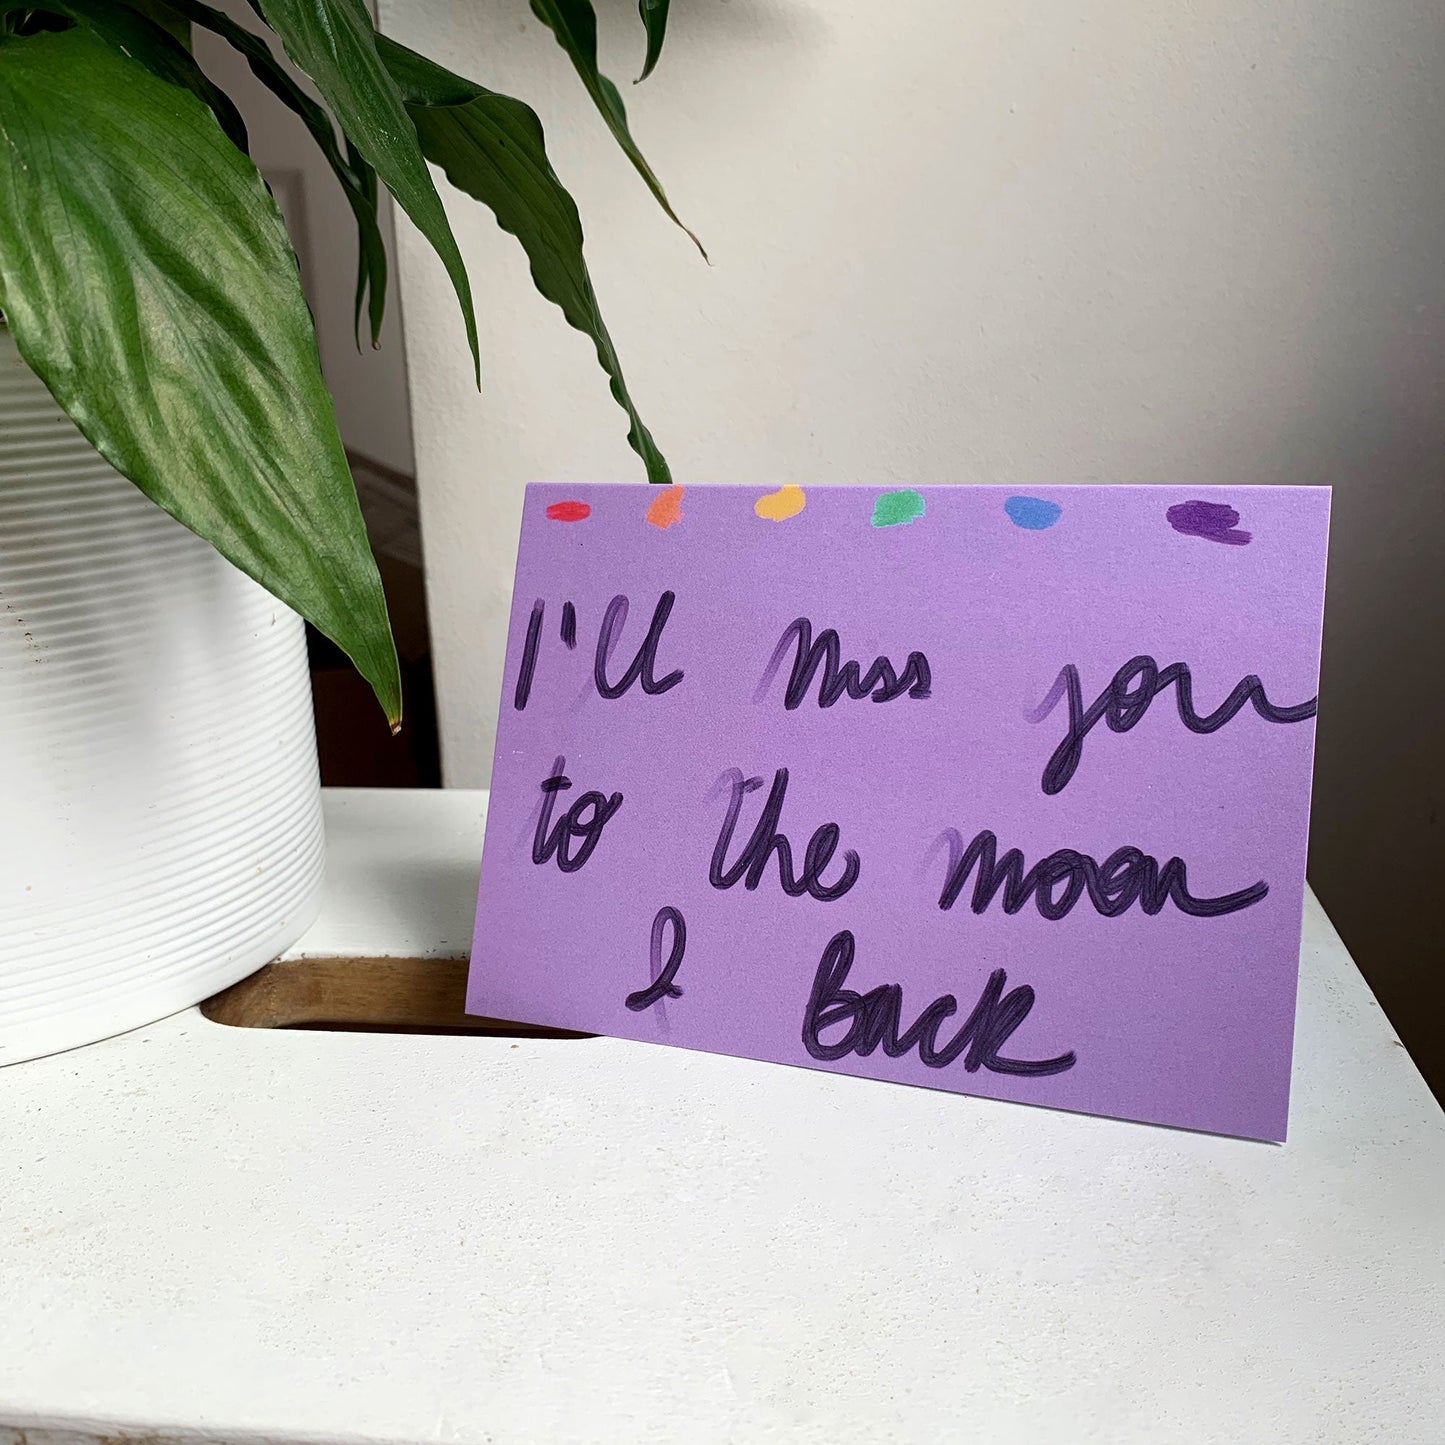 I'll miss you
to the moon
& back